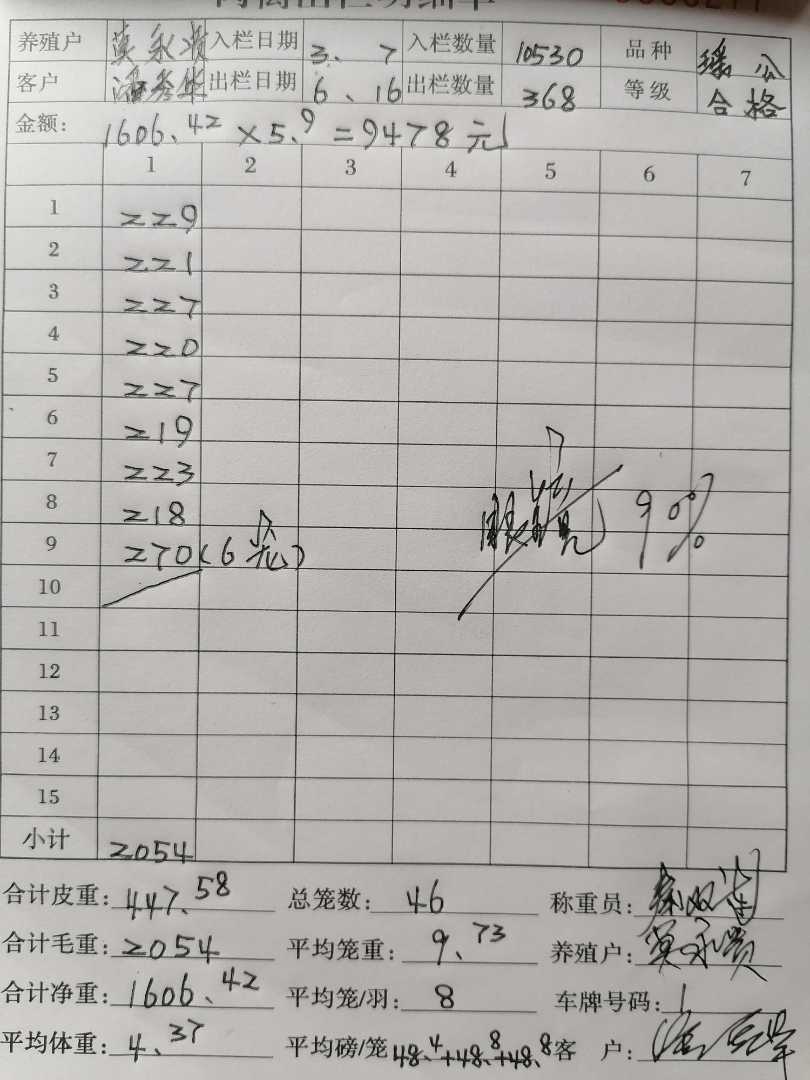 养殖户 莫永贵 入栏日期 3、7 入栏数量 10530 品种 瑶公
客户 出栏日期 6、16 出栏数量 368 等级 合格
金额: 1606.42 × 5.9 = 9478元
1 2 3 4 5 6 7
1 229
2 221
3 227
4 220
5 227
6 219
7 223
8 218
9 270(6笼) 9%
10
11
12
13
14
15
小计 2054
合计皮重: 447.58 总笼数: 46 称重员:
合计毛重: 2054 平均笼重: 9.73 养殖户: 莫永贵
合计净重: 1606.42 平均笼/羽: 8 车牌号码: 1
平均体重: 4.37 平均磅/笼 48.4+48.8+48.8 客户: